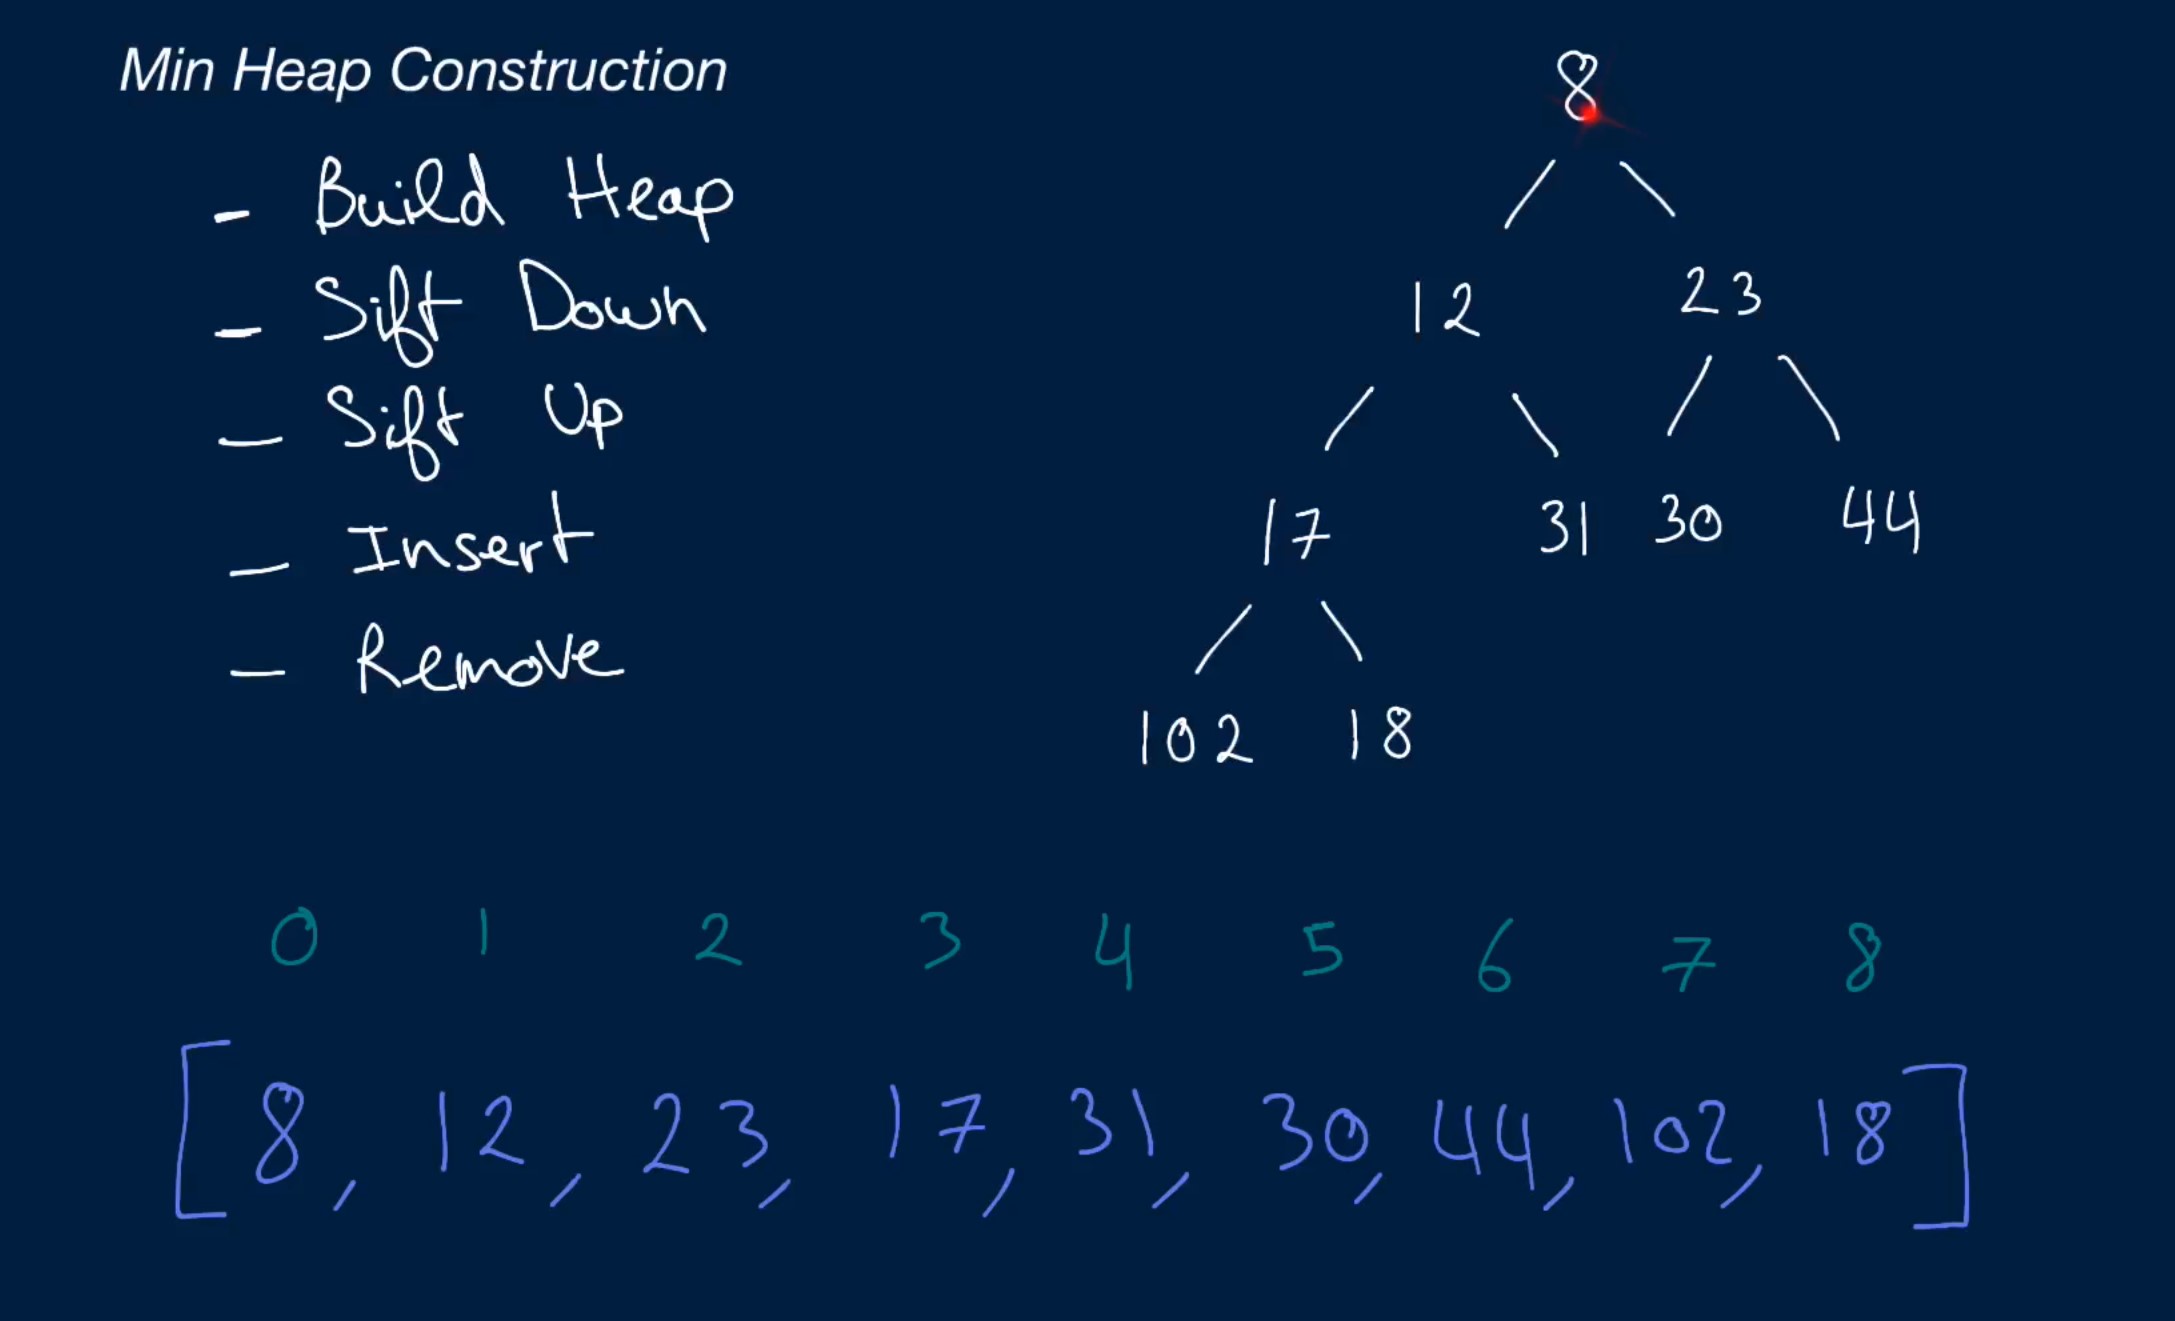 Min Heap Construction
- Build Heap
- Sift Down
- Sift Up
- Insert
- Remove
8
12 23
17 31 30 44
102 18
0 1 2 3 4 5 6 7 8
[8, 12, 23, 17, 31, 30, 44, 102, 18]